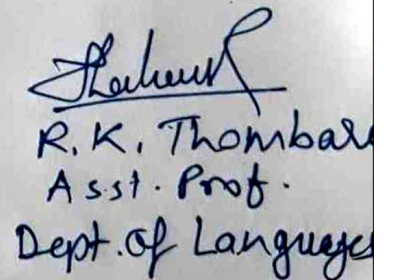 R. K. Thombar
Asst. Prof.
Dept. of Languages